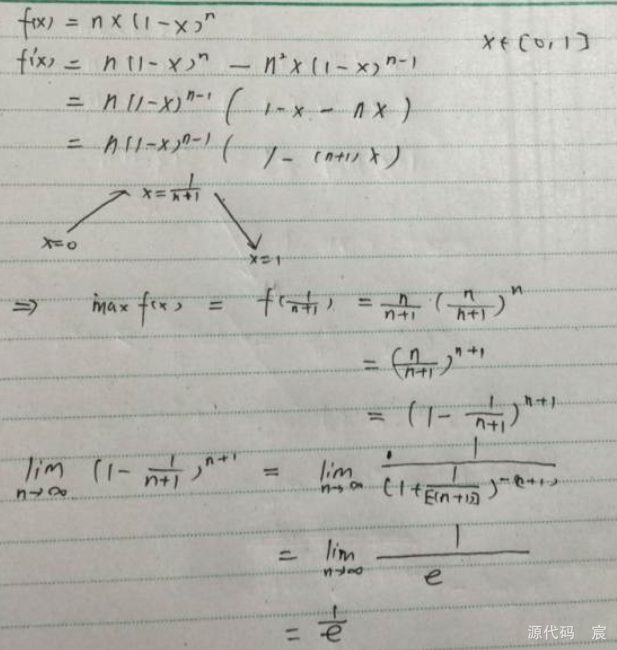 f(x) = nx(1-x)ⁿ
x∈[0,1]
f'(x) = n(1-x)ⁿ - n²x(1-x)ⁿ⁻¹
= n(1-x)ⁿ⁻¹( 1-x - nx )
= n(1-x)ⁿ⁻¹( 1-(n+1)x )
x=1/(n+1)
x=0
x=1
⇒ max f(x) = f(1/(n+1)) = n/(n+1) (n/(n+1))ⁿ
= (n/(n+1))ⁿ⁺¹
= (1- 1/(n+1))ⁿ⁺¹
lim n→∞ (1- 1/(n+1))ⁿ⁺¹ = lim n→∞ 1/(1+ 1/[-(n+1)])^-(n+1)
= lim n→∞ 1/e
= 1/e
源代码 宸